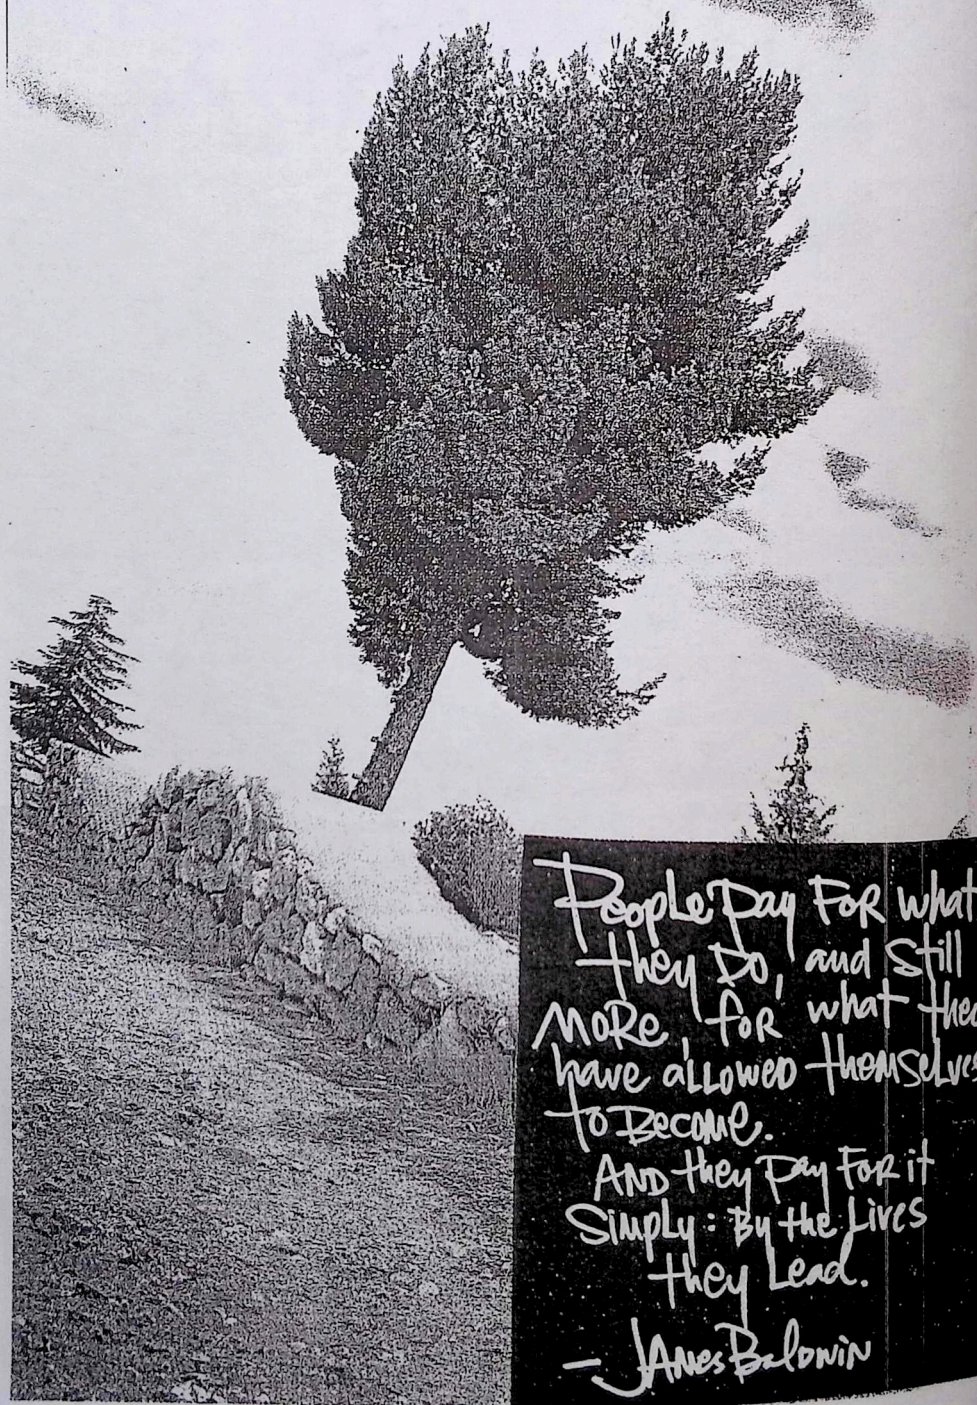 People Pay For what
they Do, and Still
More, for what they
have allowed themselves
to Become.
And they Pay For it
Simply: By the Lives
they Lead.
- James Baldwin